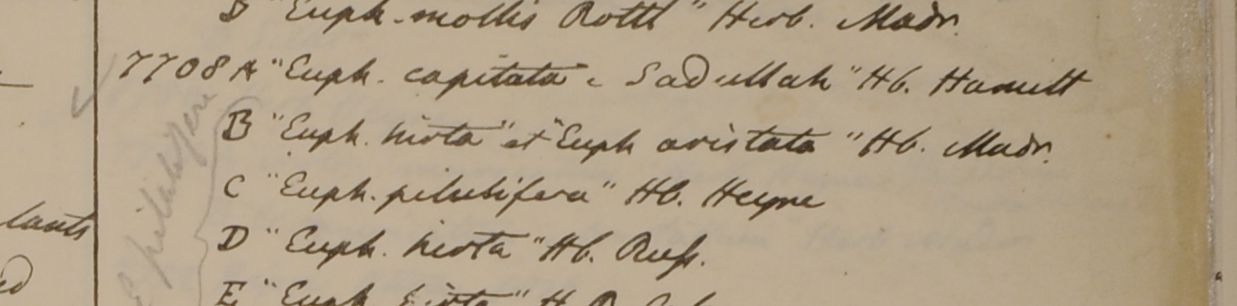 B "Euph. mollis Rottl" Herb. Madr.
7708 A "Euph. capitata - Sadullah" Hb. Hamilt
B "Euph. hirta" et "Euph aristata" Hb. Madr.
C "Euph. pilulifera" Hb. Heyne
lants
D "Euph. hirta" Hb. Russ.
E "Euph. hirta" H.